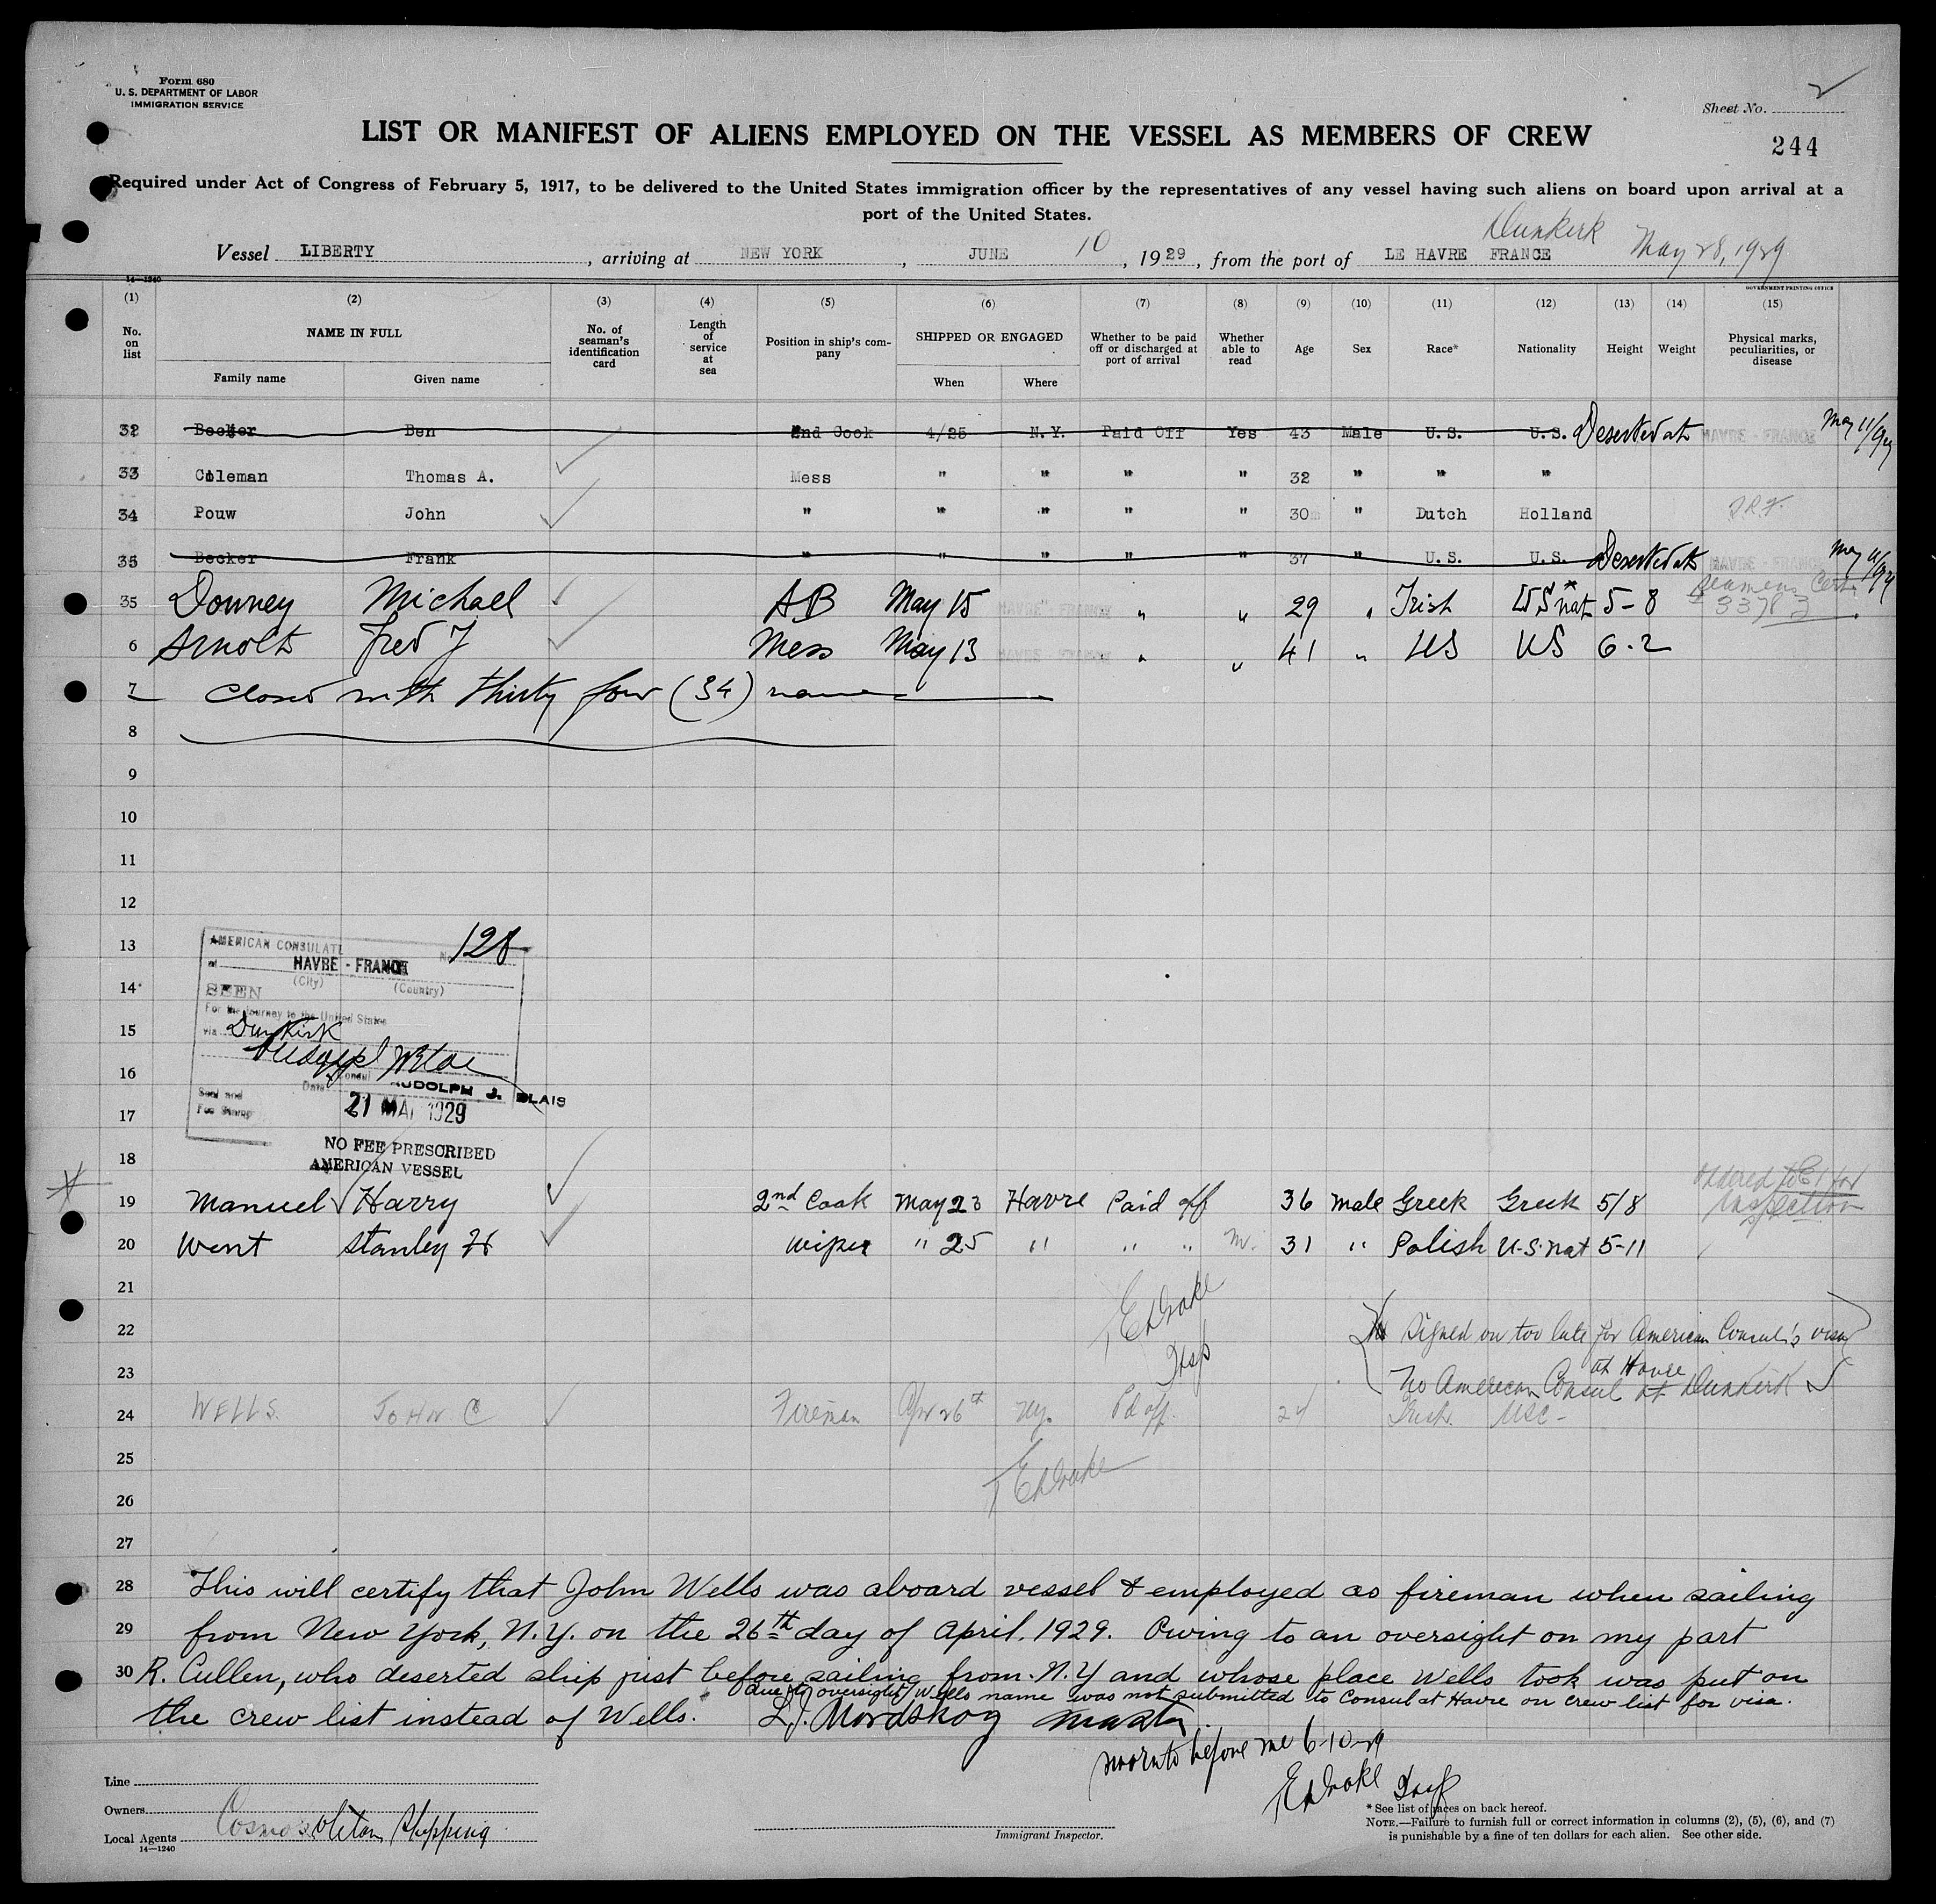 Form 680
U. S. DEPARTMENT OF LABOR
IMMIGRATION SERVICE
Sheet No. 2
LIST OR MANIFEST OF ALIENS EMPLOYED ON THE VESSEL AS MEMBERS OF CREW
244
Required under Act of Congress of February 5, 1917, to be delivered to the United States immigration officer by the representatives of any vessel having such aliens on board upon arrival at a
port of the United States.
Dunkirk
Vessel LIBERTY, arriving at NEW YORK, JUNE 10, 1929, from the port of LE HAVRE FRANCE May 28, 1929
14—1240
GOVERNMENT PRINTING OFFICE
(1) (2) (3) (4) (5) (6) (7) (8) (9) (10) (11) (12) (13) (14) (15)
No. on list NAME IN FULL No. of seaman's identification card Length of service at sea Position in ship's company SHIPPED OR ENGAGED Whether to be paid off or discharged at port of arrival Whether able to read Age Sex Race* Nationality Height Weight Physical marks, peculiarities, or disease
Family name Given name When Where
32 Becker Ben 2nd Cook 4/25 N.Y. Paid Off Yes 43 Male U.S. U.S. Deserted at HAVRE - FRANCE May 11/29
33 Coleman Thomas A. Mess " " " " 32 " " "
34 Pouw John " " " " " 30 " Dutch Holland
35 Becker Frank " " " " " 37 " U.S. U.S. Deserted at HAVRE - FRANCE May 11/29
35 Downey Michael AB May 15 HAVRE - FRANCE " " 29 " Irish US nat* 5-8 Seamens Cert. 33787
6 Arnolt Fred J Mess May 13 HAVRE - FRANCE " " 41 " US US 6-2
7 Closed with thirty four (34) names
8
9
10
11
12
13
AMERICAN CONSULATE No. 128
at HAVRE - FRANCE
(City) (Country)
14
SEEN
For the journey to the United States
15
via Dunkirk
16
Consul RUDOLPH J. BLAIS
Date 21 MAI 1929
Seal and
Fee Stamp
17
NO FEE PRESCRIBED
AMERICAN VESSEL
18
Ordered to E I for inspection
19 Manuel Harry 2nd Cook May 23 Havre Paid off 36 male Greek Greek 5/8
20 Went Stanley H wiper " 25 " " " 31 " Polish U.S. nat 5-11
21
E A Drake
Insp
22 Signed on too late for American Consul's visa
at Havre
23 No American Consul at Dunkirk
24 WELLS. JOHN C Fireman Apr 26th NY. Pd off. 24 Irish. USC -
25
E A Drake
26
27
28 This will certify that John Wells was aboard vessel & employed as fireman when sailing
29 from New York, N.Y. on the 26th day of April, 1929. Owing to an oversight on my part
30 R. Cullen, who deserted ship just before sailing from N.Y and whose place Wells took was put on
due to oversight Wells name was not submitted to Consul at Havre on crew list for visa.
the crew list instead of Wells. L.J. Nordskog Master.
Sworn to before me 6-10-29
E A Drake Insp
Line
Owners
Local Agents Cosmopolitan Shipping
14—1240
Immigrant Inspector.
* See list of races on back hereof.
NOTE.—Failure to furnish full or correct information in columns (2), (5), (6), and (7)
is punishable by a fine of ten dollars for each alien. See other side.